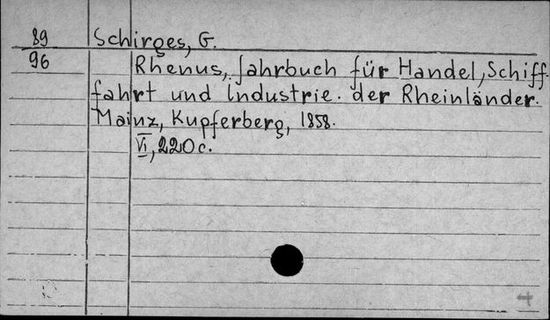 89 Schirges, G.
96 Rhenus, Jahrbuch für Handel, Schiff-
fahrt und Industrie. der Rheinländer.
Mainz, Kupferberg, 1858.
VI, 220 c.